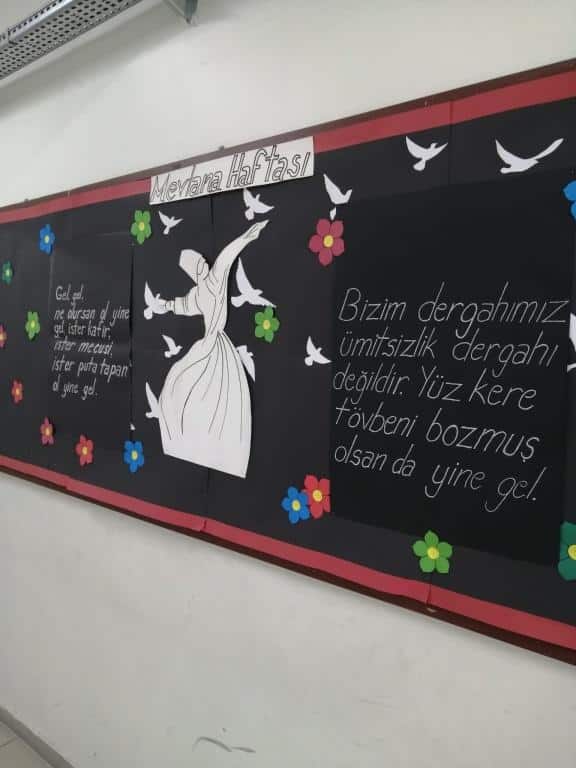 Mevlana Haftası
Gel, gel,
ne olursan ol yine
gel, ister kafir,
ister mecusi,
ister puta tapan
ol yine gel.
Bizim dergahımız
ümitsizlik dergahı
değildir. Yüz kere
tövbeni bozmuş
olsan da yine gel.